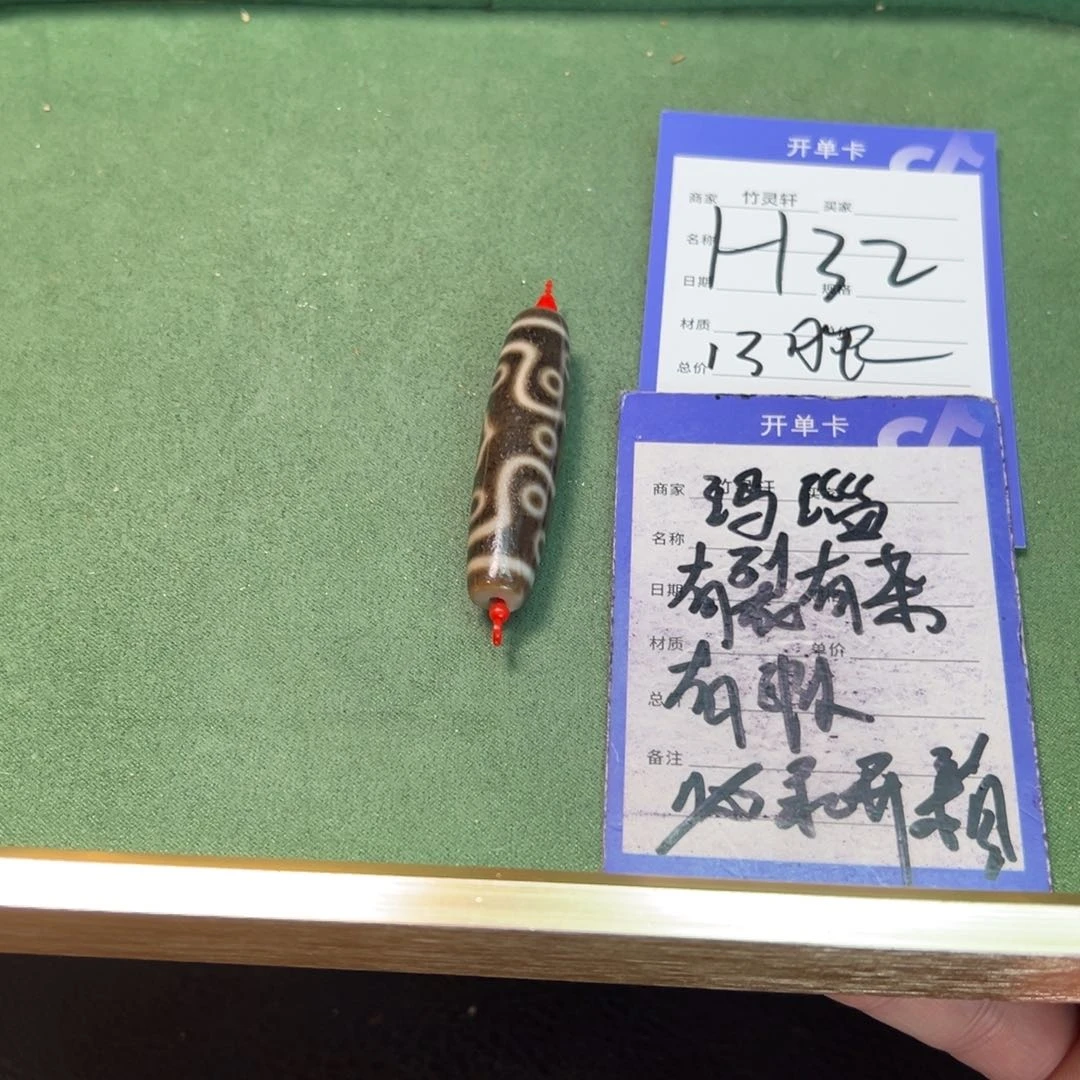 开单卡
商家 竹灵轩 买家
名称 H32
日期 规格
材质
总价 13眼
开单卡
商家 玛瑙
名称
日期 有裂有染
材质 单价
有瑕
备注